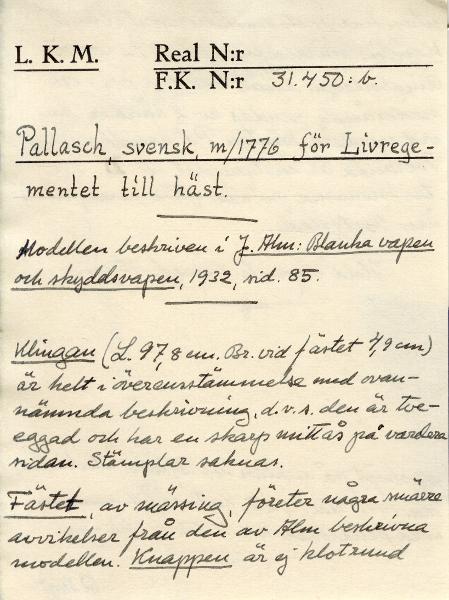 L. K. M. Real N:r
F.K. N:r 31.450:b.
Pallasch, svensk, m/1776 för Livrege-
mentet till häst.
Modellen beskriven i J. Alm: Blanka vapen
och skyddsvapen, 1932, sid. 85.
Klingan (L. 97,8 cm. Br. vid fästet 4,9 cm)
är helt i överensstämmelse med ovan-
nämnda beskrivning, d.v.s. den är tve-
eggad och har en skarp mittås på vardera
sidan. Stämplar saknas.
Fästet, av mässing, företer några smärre
avvikelser från den av Alm beskrivna
modellen. Knappen är ej klotrund